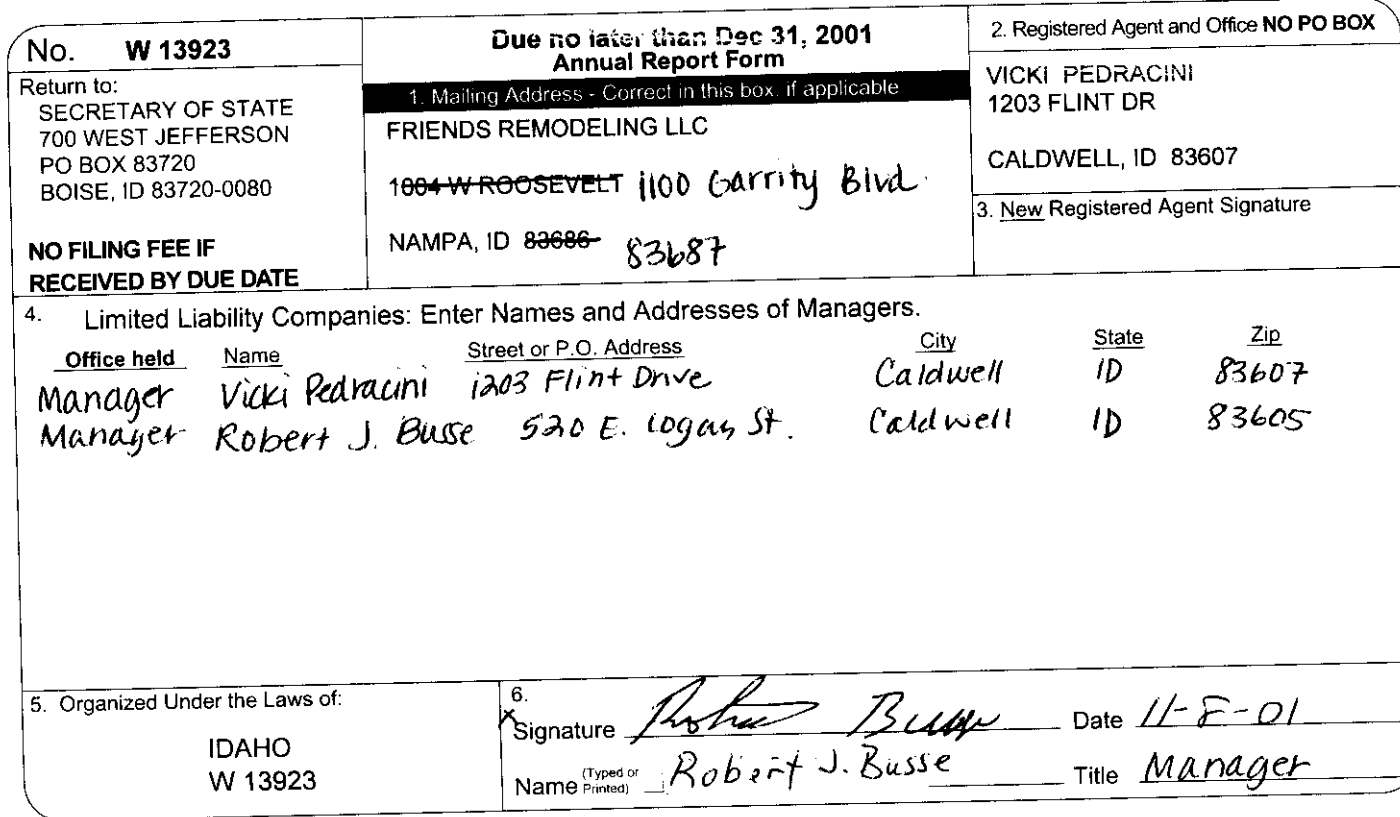 No. W 13923
Return to:
SECRETARY OF STATE
700 WEST JEFFERSON
PO BOX 83720
BOISE, ID 83720-0080
NO FILING FEE IF
RECEIVED BY DUE DATE
Due no later than Dec 31, 2001
Annual Report Form
1. Mailing Address - Correct in this box. if applicable
FRIENDS REMODELING LLC
1004 W ROOSEVELT 1100 Garrity Blvd.
NAMPA, ID 83686 83687
2. Registered Agent and Office NO PO BOX
VICKI PEDRACINI
1203 FLINT DR
CALDWELL, ID 83607
3. New Registered Agent Signature
4. Limited Liability Companies: Enter Names and Addresses of Managers.
Office held Name Street or P.O. Address City State Zip
Manager Vicki Pedracini 1203 Flint Drive Caldwell ID 83607
Manager Robert J. Busse 520 E. Logan St. Caldwell ID 83605
5. Organized Under the Laws of:
IDAHO
W 13923
6.
X Signature Robert Busse Date 11-8-01
Name (Typed or Printed) Robert J. Busse Title Manager